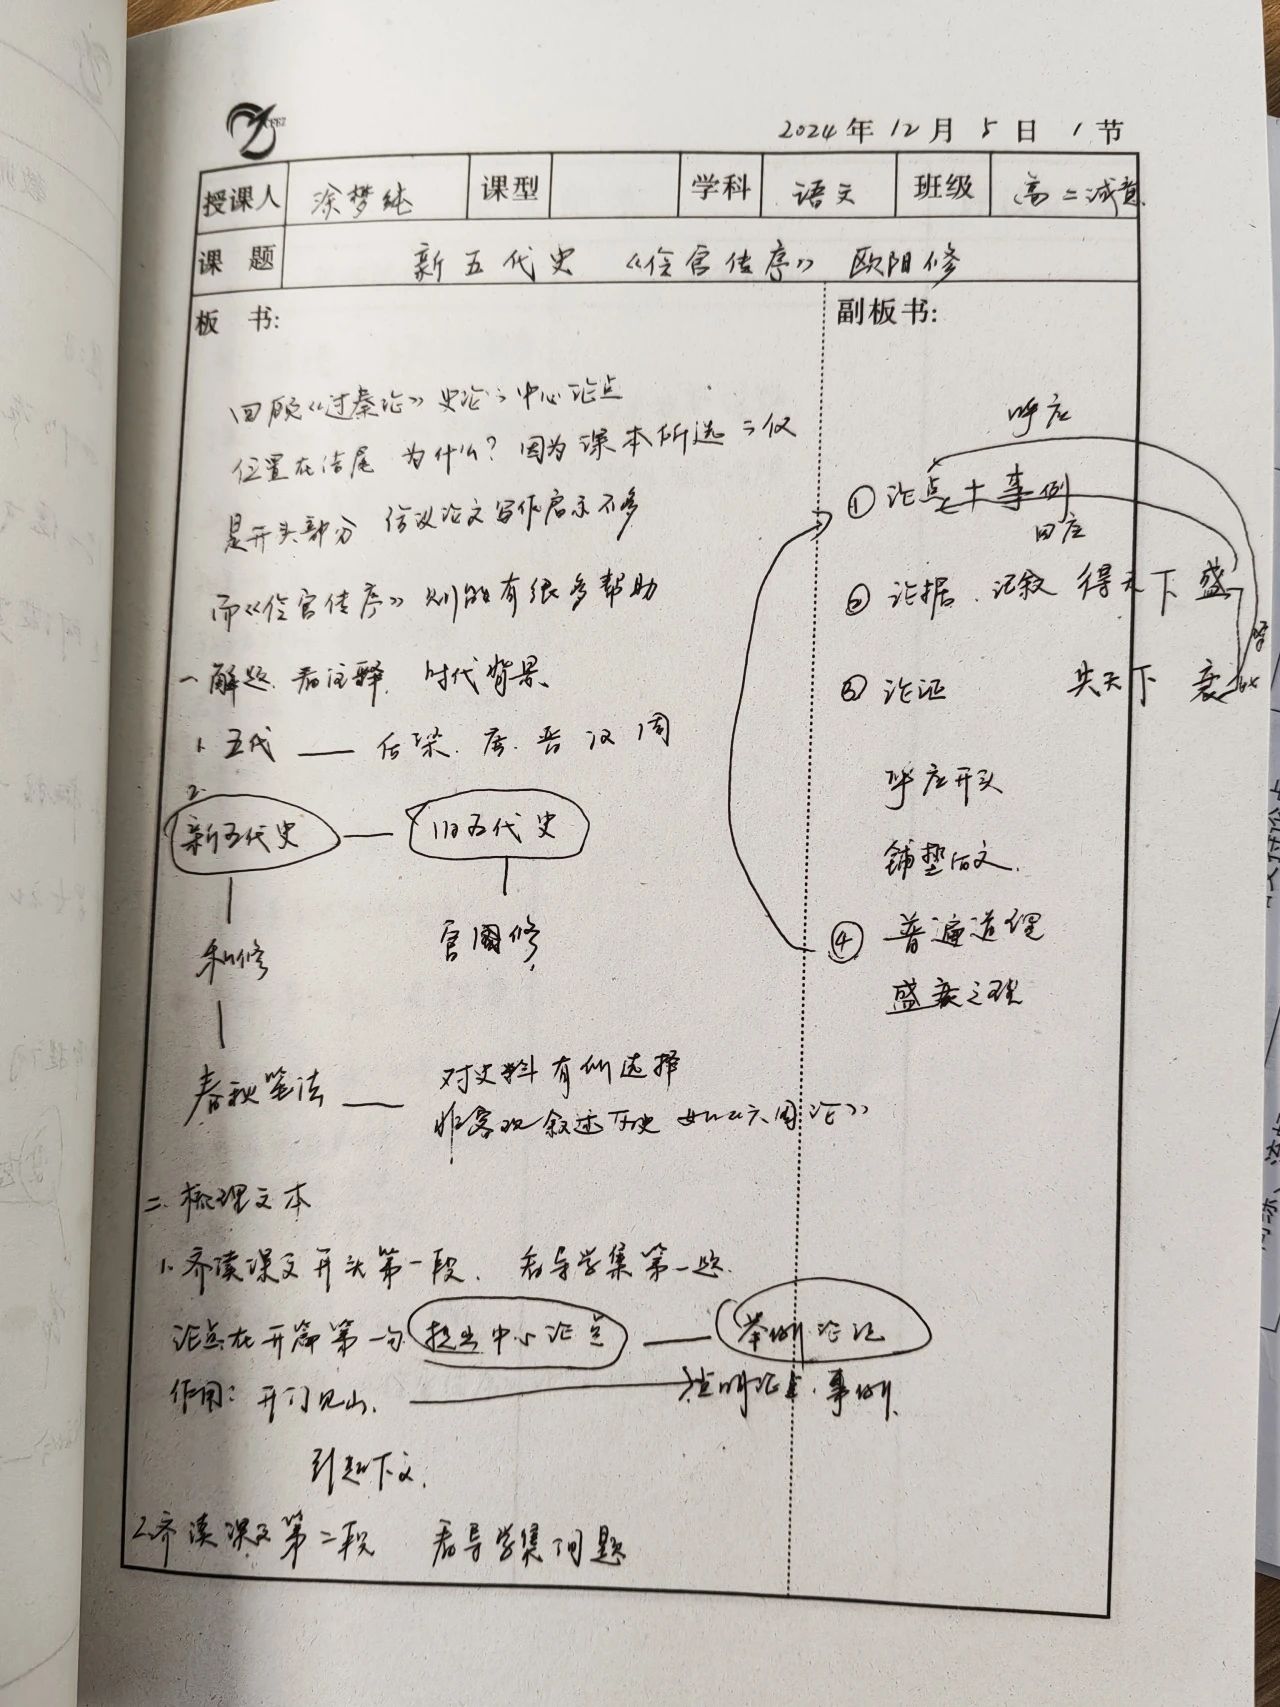 2024年12月5日 1节
授课人 涂梦纯 课型 学科 语文 班级 高二诚意
课 题 新五代史 《伶官传序》 欧阳修
板 书:
回顾《过秦论》史论 中心论点
位置在结尾 为什么? 因为课本所选 仅
是开头部分 给议论文写作启示不多
而《伶官传序》则能有很多帮助
一 解题. 看注释. 时代背景.
1. 五代 —— 后梁. 唐. 晋 汉 周
2.
新五代史 — 旧五代史
私修 官图修
春秋笔法 —— 对史料有所选择
非客观叙述历史 如《六国论》
二. 梳理文本
1. 齐读课文开头第一段. 看导学集第一题.
论点在开篇第一句 提出中心论点 —— 举例论证
作用: 开门见山. 证明论点. 事例.
引起下文.
2. 齐读课文第二段 看导学集问题
副板书:
呼应
① 论点+事例
回应
② 论据. 记叙 得天下 盛
③ 论证 失天下 衰
呼应开头
铺垫后文.
④ 普遍道理
盛衰之理